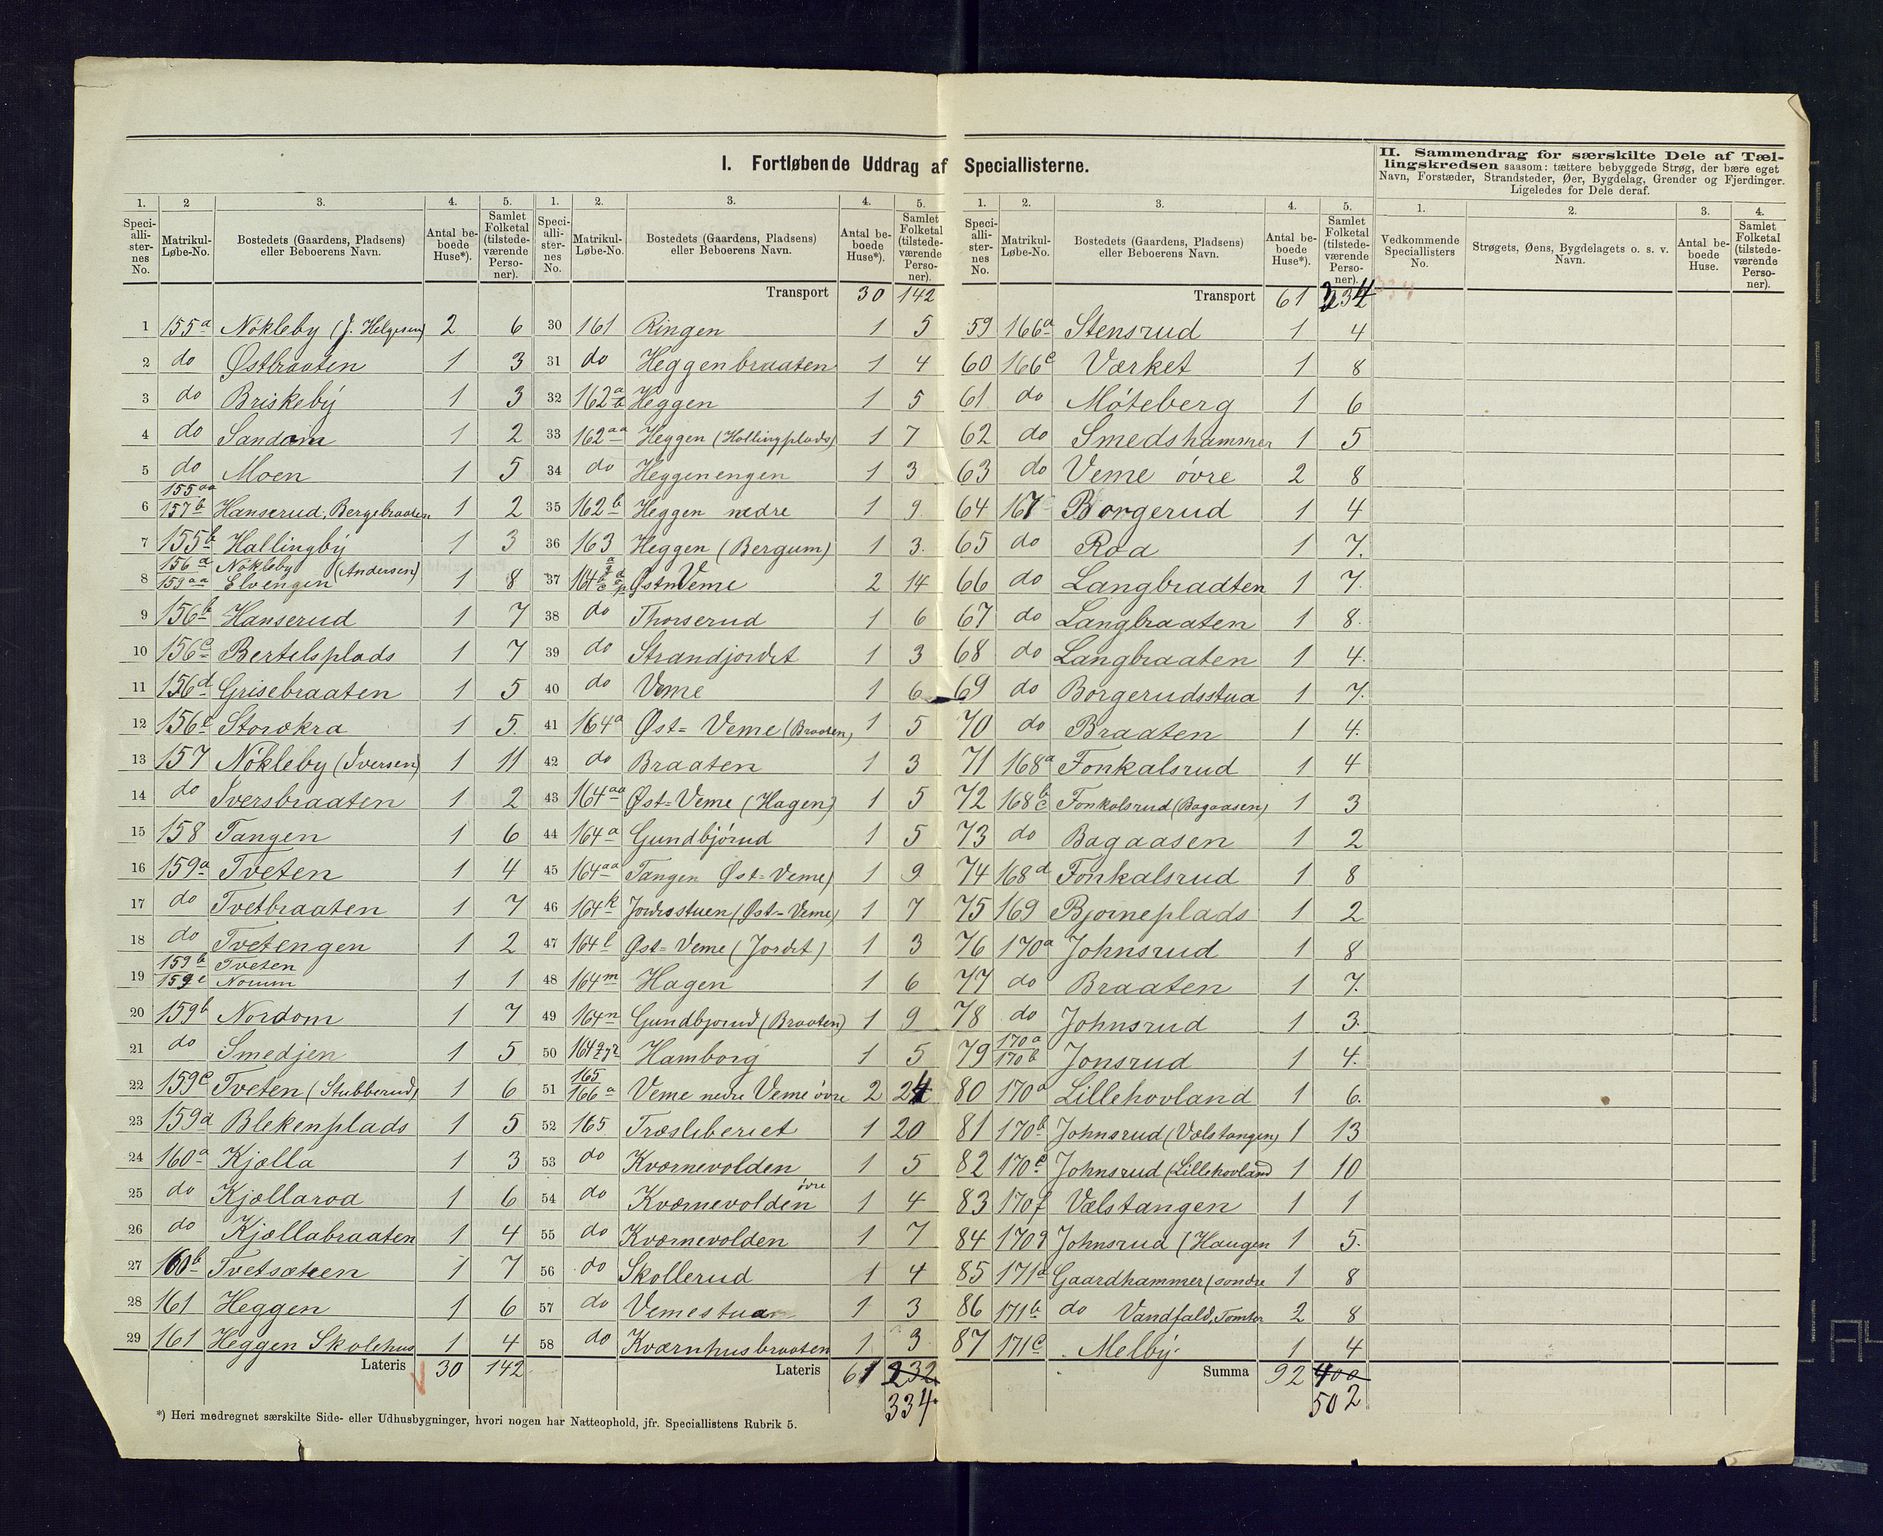 I. Fortløbende Uddrag af Speciallisterne.
II. Sammendrag for særskilte Dele af Tællingskredsen saasom: tættere bebyggede Strøg, der bære eget Navn, Forstæder, Strandsteder, Øer, Bygdelag, Grender og Fjerdinger. Ligeledes for Dele deraf.
1. 2 3. 4. 5.
Speciallisternes No. Matrikul-Løbe-No. Bostedets (Gaardens, Pladsens) eller Beboerens Navn. Antal beboede Huse*). Samlet Folketal (tilstedeværende Personer).
1 155a Nökleby (J. Helgesen) 2 6
2 do Østbraaten 1 3
3 do Briskeby 1 3
4 do Sandom 1 2
5 do Moen 1 5
6 155aa 157b Hanserud, Bergebraaten 1 2
7 155b Hallingby 1 3
8 156a 159aa Nökleby Elvengen (Andersen) 1 8
9 156b Hanserud 1 7
10 156c Bertelsplads 1 7
11 156d Grisebraaten 1 5
12 156e Storækra 1 5.
13 157 Nökleby (Iversen) 1 11
14 do Iversbraaten 1 2
15 158 Tangen 1 6
16 159a Tveten 1 4
17 do Tvetbraaten 1 7
18 do Tvetengen 1 2
19 159b 159c Tveten Norum 1 1
20 159b Nordom 1 7
21 do Smedjen 1 5
22 159c Tveten (Stubberud) 1 6
23 159d Blekenplads 1 5
24 160a Kjælla 1 3
25 do Kjællaroa 1 6
26 do Kjællabraaten 1 4
27 160b Tvetsæteren 1 7
28 161 Heggen 1 6
29 161 Heggen Skolehus 1 4
Lateris 30 142
1. 2. 3. 4. 5.
Speciallisternes No. Matrikul-Løbe-No. Bostedets (Gaardens, Pladsens) eller Beboerens Navn. Antal beboede Huse*). Samlet Folketal (tilstedeværende Personer).
Transport 30 142
30 161 Ringen 1 5
31 do Heggenbraaten 1 4
32 162a b Heggen 1 5
33 162aa Heggen (Hallingplads) 1 7
34 do Heggenengen 1 3
35 162b Heggen nedre 1 9
36 163 Heggen (Bergum) 1 3.
37 164 Øst Veme 2 14
38 do Thorserud 1 6
39 do Strandjordet 1 3
40 do Veme 1 6
41 164a Øst=Veme (Braaten) 1 5
42 do Braaten 1 3
43 164aa Øst=Veme (Hagen) 1 5
44 164a Gundbjörud 1 5
45 164aa Tangen Øst=Veme) 1 9
46 164k Jordestuen (Øst=Veme) 1 7
47 164l Øst=Veme (Jordet) 1 3
48 164m Hagen 1 6
49 164n Gundbjorud (Braaten) 1 9
50 164 Hamborg 1 5
51 165 166a Veme nedre Veme övre 2 24
52 165 Træsliberiet 1 20
53 do Kværnevolden 1 5
54 do Kværnevolden övre 1 4
55 do Kværnevolden 1 7
56 do Skollerud 1 4
57 do Vemestuan 1 3
58 do Kværnhusbraaten 1 3
Lateris 61 232
334.
1. 2. 3. 4. 5.
Speciallisternes No. Matrikul-Løbe-No. Bostedets (Gaardens, Pladsens) eller Beboerens Navn. Antal beboede Huse*). Samlet Folketal (tilstedeværende Personer).
Transport 61 334
59 166a Stensrud 1 4
60 166c Værket 1 8
61 do Möteberg 1 6
62 do Smedshammer 1 5
63 do Veme övre 2 8
64 167 Borgerud 1 4
65 do Roa 1 7.
66 do Langbraaten 1 7.
67 do Langbraaten 1 8.
68 do Langbraaten 1 4.
69 do Borgerudsstua 1 7.
70 do Braaten 1 4.
71 168a Fonkalsrud 1 4
72 168b c Fonkalsrud (Bagaasen) 1 3
73 do Bagaasen 1 2
74 168d Fonkalsrud 1 8
75 169 Bjorneplads 1 2
76 170a Johnsrud 1 8
77 do Braaten 1 7.
78 do Johnsrud 1 3.
79 170a 170b Jonsrud 1 4.
80 170a Lillehovland 1 6.
81 170b Johnsrud (Vælstangen) 1 13
82 170e Johnsrud (Lillehovland 1 10
83 170f Vælstangen 1 1
84 170g Johnsrud (Haugen 1 5.
85 171a Gaardhammer (sondre 1 8
86 171b do Vandfald, Tomter 2 8
87 171c Melby 1 4
Summa 92 400
502
1. 2. 3. 4.
Vedkommende Speciallisters No. Strøgets, Øens, Bygdelagets o. s. v. Navn. Antal beboede Huse. Samlet Folketal (tilstedeværende Personer).
*) Heri medregnet særskilte Side- eller Udhusbygninger, hvori nogen har Natteophold, jfr. Speciallistens Rubrik 5.